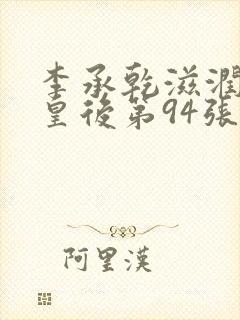 李承乾滋潤
皇後第94張
阿里漢